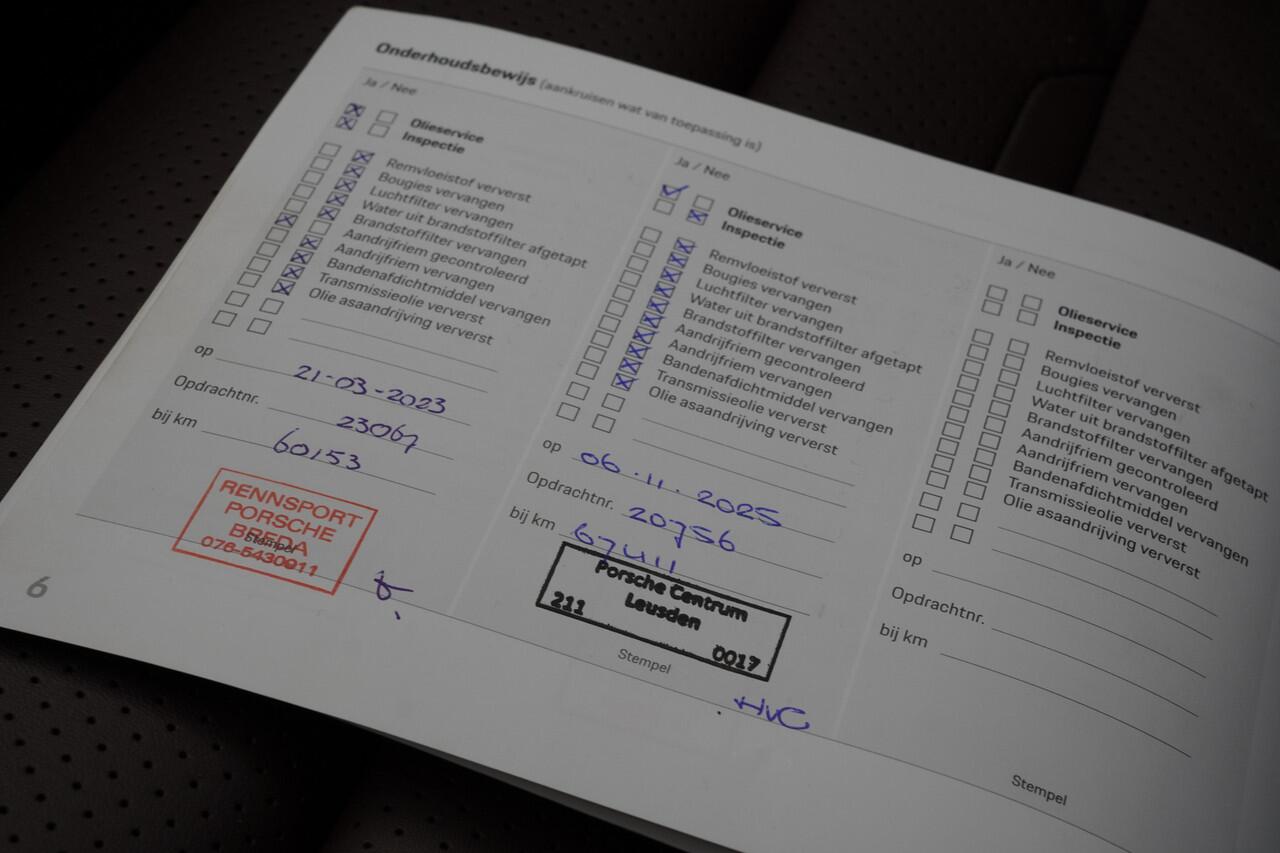 Onderhoudsbewijs (aankruisen wat van toepassing is)
Ja / Nee
Olieservice
Inspectie
Remvloeistof ververst
Bougies vervangen
Luchtfilter vervangen
Water uit brandstoffilter afgetapt
Brandstoffilter vervangen
Aandrijfriem gecontroleerd
Aandrijfriem vervangen
Bandenafdichtmiddel vervangen
Transmissieolie ververst
Olie asaandrijving ververst
op 21-03-2023
Opdrachtnr. 23067
bij km 60153
RENNSPORT
PORSCHE
BREDA
Stempel
076-5430911
6
Ja / Nee
Olieservice
Inspectie
Remvloeistof ververst
Bougies vervangen
Luchtfilter vervangen
Water uit brandstoffilter afgetapt
Brandstoffilter vervangen
Aandrijfriem gecontroleerd
Aandrijfriem vervangen
Bandenafdichtmiddel vervangen
Transmissieolie ververst
Olie asaandrijving ververst
op 06.11.2025
Opdrachtnr. 20756
bij km 67411
Porsche Centrum
Leusden
211 0017
Stempel
HvC
Ja / Nee
Olieservice
Inspectie
Remvloeistof ververst
Bougies vervangen
Luchtfilter vervangen
Water uit brandstoffilter afgetapt
Brandstoffilter vervangen
Aandrijfriem gecontroleerd
Aandrijfriem vervangen
Bandenafdichtmiddel vervangen
Transmissieolie ververst
Olie asaandrijving ververst
op
Opdrachtnr.
bij km
Stempel